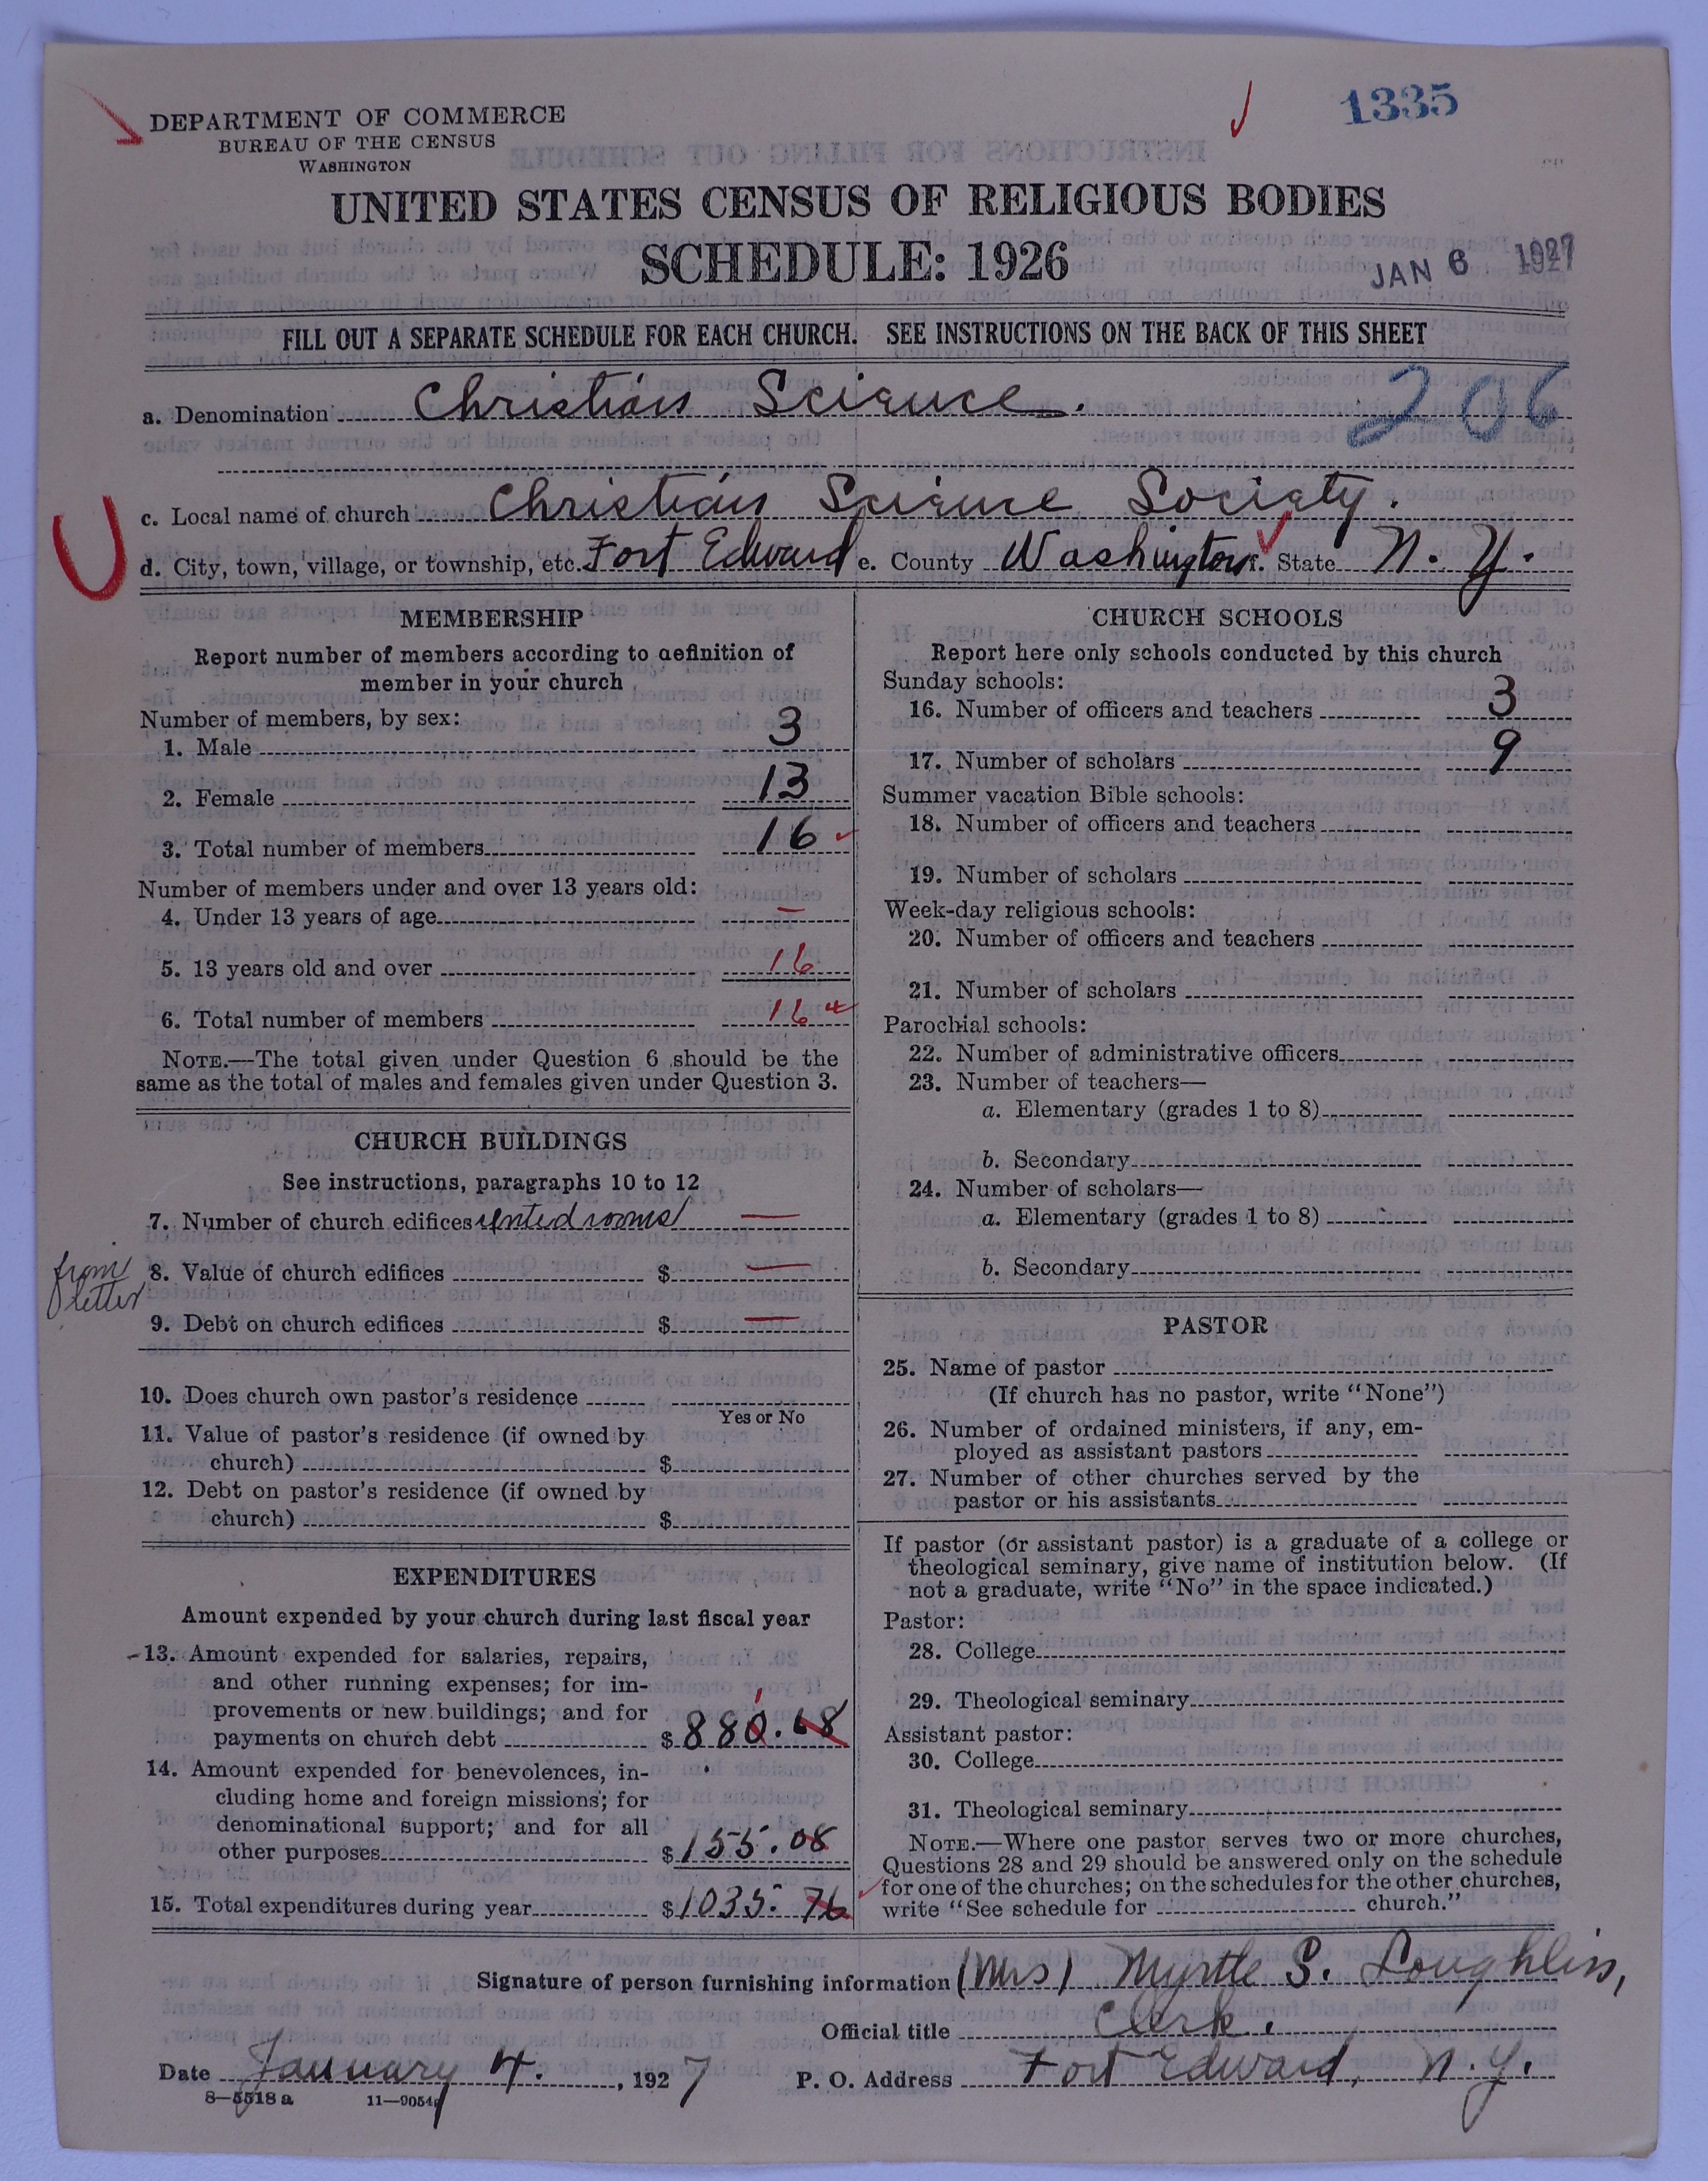 1335
DEPARTMENT OF COMMERCE
BUREAU OF THE CENSUS
WASHINGTON
UNITED STATES CENSUS OF RELIGIOUS BODIES
SCHEDULE: 1926
JAN 6 1927
FILL OUT A SEPARATE SCHEDULE FOR EACH CHURCH. SEE INSTRUCTIONS ON THE BACK OF THIS SHEET
a. Denomination Christian Science. 206
c. Local name of church Christian Science Society.
d. City, town, village, or township, etc. Fort Edward e. County Washington f. State N. Y.
MEMBERSHIP
Report number of members according to definition of
member in your church
Number of members, by sex:
1. Male 3
2. Female 13
3. Total number of members 16
Number of members under and over 13 years old:
4. Under 13 years of age —
5. 13 years old and over 16
6. Total number of members 16
NOTE.—The total given under Question 6 should be the
same as the total of males and females given under Question 3.
CHURCH BUILDINGS
See instructions, paragraphs 10 to 12
7. Number of church edifices rented rooms —
from letter
8. Value of church edifices $ —
9. Debt on church edifices $ —
10. Does church own pastor's residence
Yes or No
11. Value of pastor's residence (if owned by
church) $
12. Debt on pastor's residence (if owned by
church) $
EXPENDITURES
Amount expended by your church during last fiscal year
13. Amount expended for salaries, repairs,
and other running expenses; for im-
provements or new buildings; and for
payments on church debt $ 880.68
1
14. Amount expended for benevolences, in-
cluding home and foreign missions; for
denominational support; and for all
other purposes $ 155.08
15. Total expenditures during year $ 1035.76
CHURCH SCHOOLS
Report here only schools conducted by this church
Sunday schools:
16. Number of officers and teachers 3
17. Number of scholars 9
Summer vacation Bible schools:
18. Number of officers and teachers
19. Number of scholars
Week-day religious schools:
20. Number of officers and teachers
21. Number of scholars
Parochial schools:
22. Number of administrative officers
23. Number of teachers—
a. Elementary (grades 1 to 8)
b. Secondary
24. Number of scholars—
a. Elementary (grades 1 to 8)
b. Secondary
PASTOR
25. Name of pastor
(If church has no pastor, write "None")
26. Number of ordained ministers, if any, em-
ployed as assistant pastors
27. Number of other churches served by the
pastor or his assistants
If pastor (or assistant pastor) is a graduate of a college or
theological seminary, give name of institution below. (If
not a graduate, write "No" in the space indicated.)
Pastor:
28. College
29. Theological seminary
Assistant pastor:
30. College
31. Theological seminary
NOTE.—Where one pastor serves two or more churches,
Questions 28 and 29 should be answered only on the schedule
for one of the churches; on the schedules for the other churches,
write "See schedule for church."
Signature of person furnishing information (Mrs) Myrtle S. Loughlin,
Official title Clerk.
Date January 4. , 1927 P. O. Address Fort Edward, N. Y.
8—5518 a 11—9054